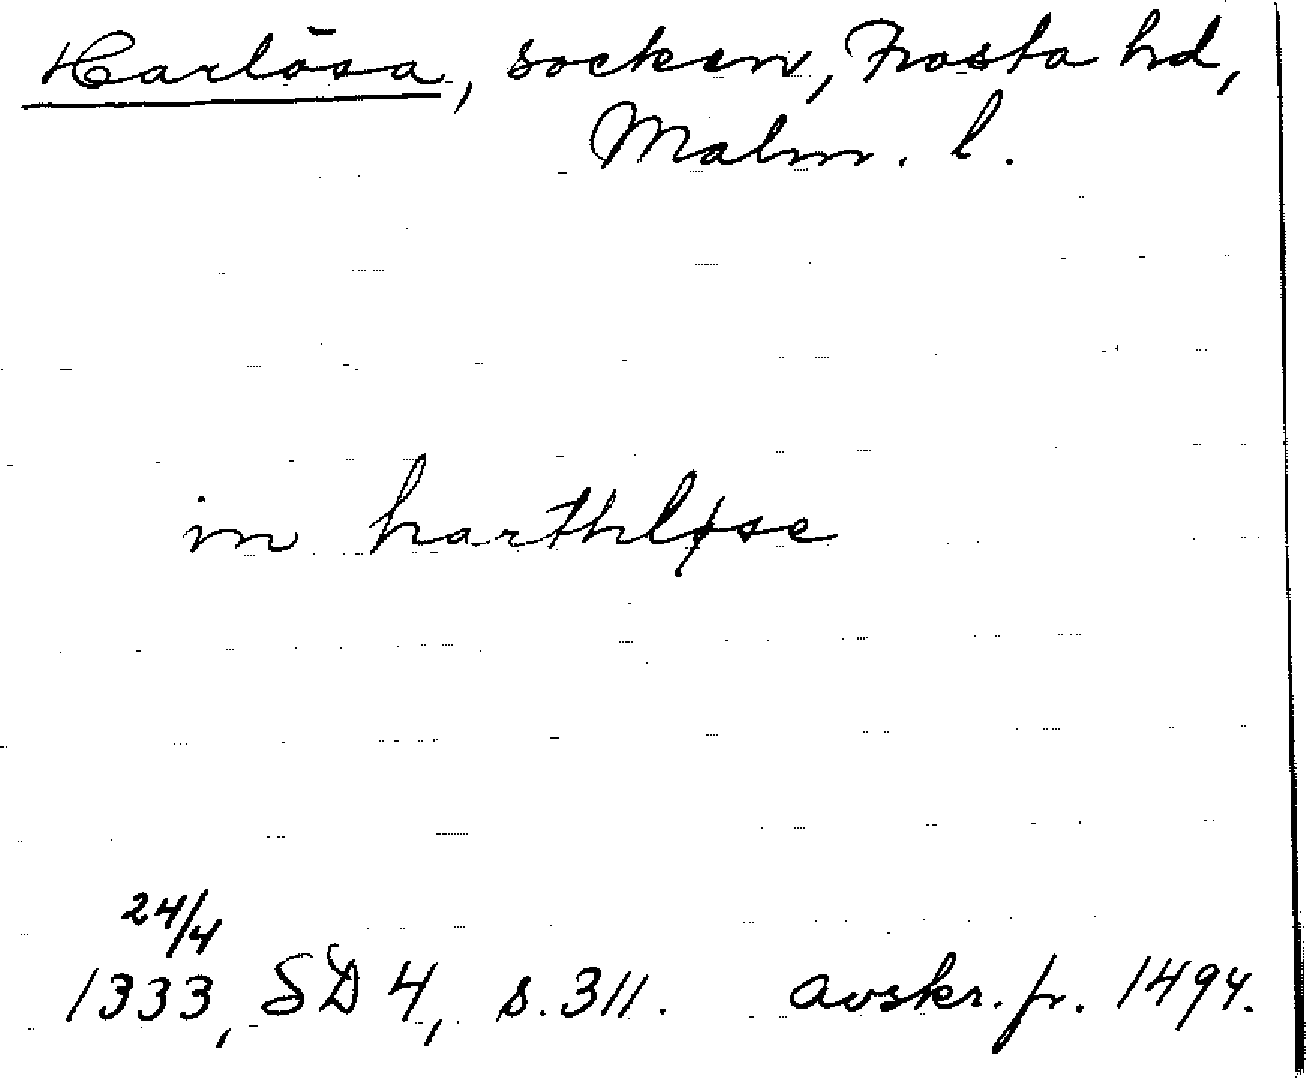 Harlösa, socken, Frosta hd,
Malm. l.
in harthløse
24/4
1333, SD 4, s. 311. avskr. fr. 1494.